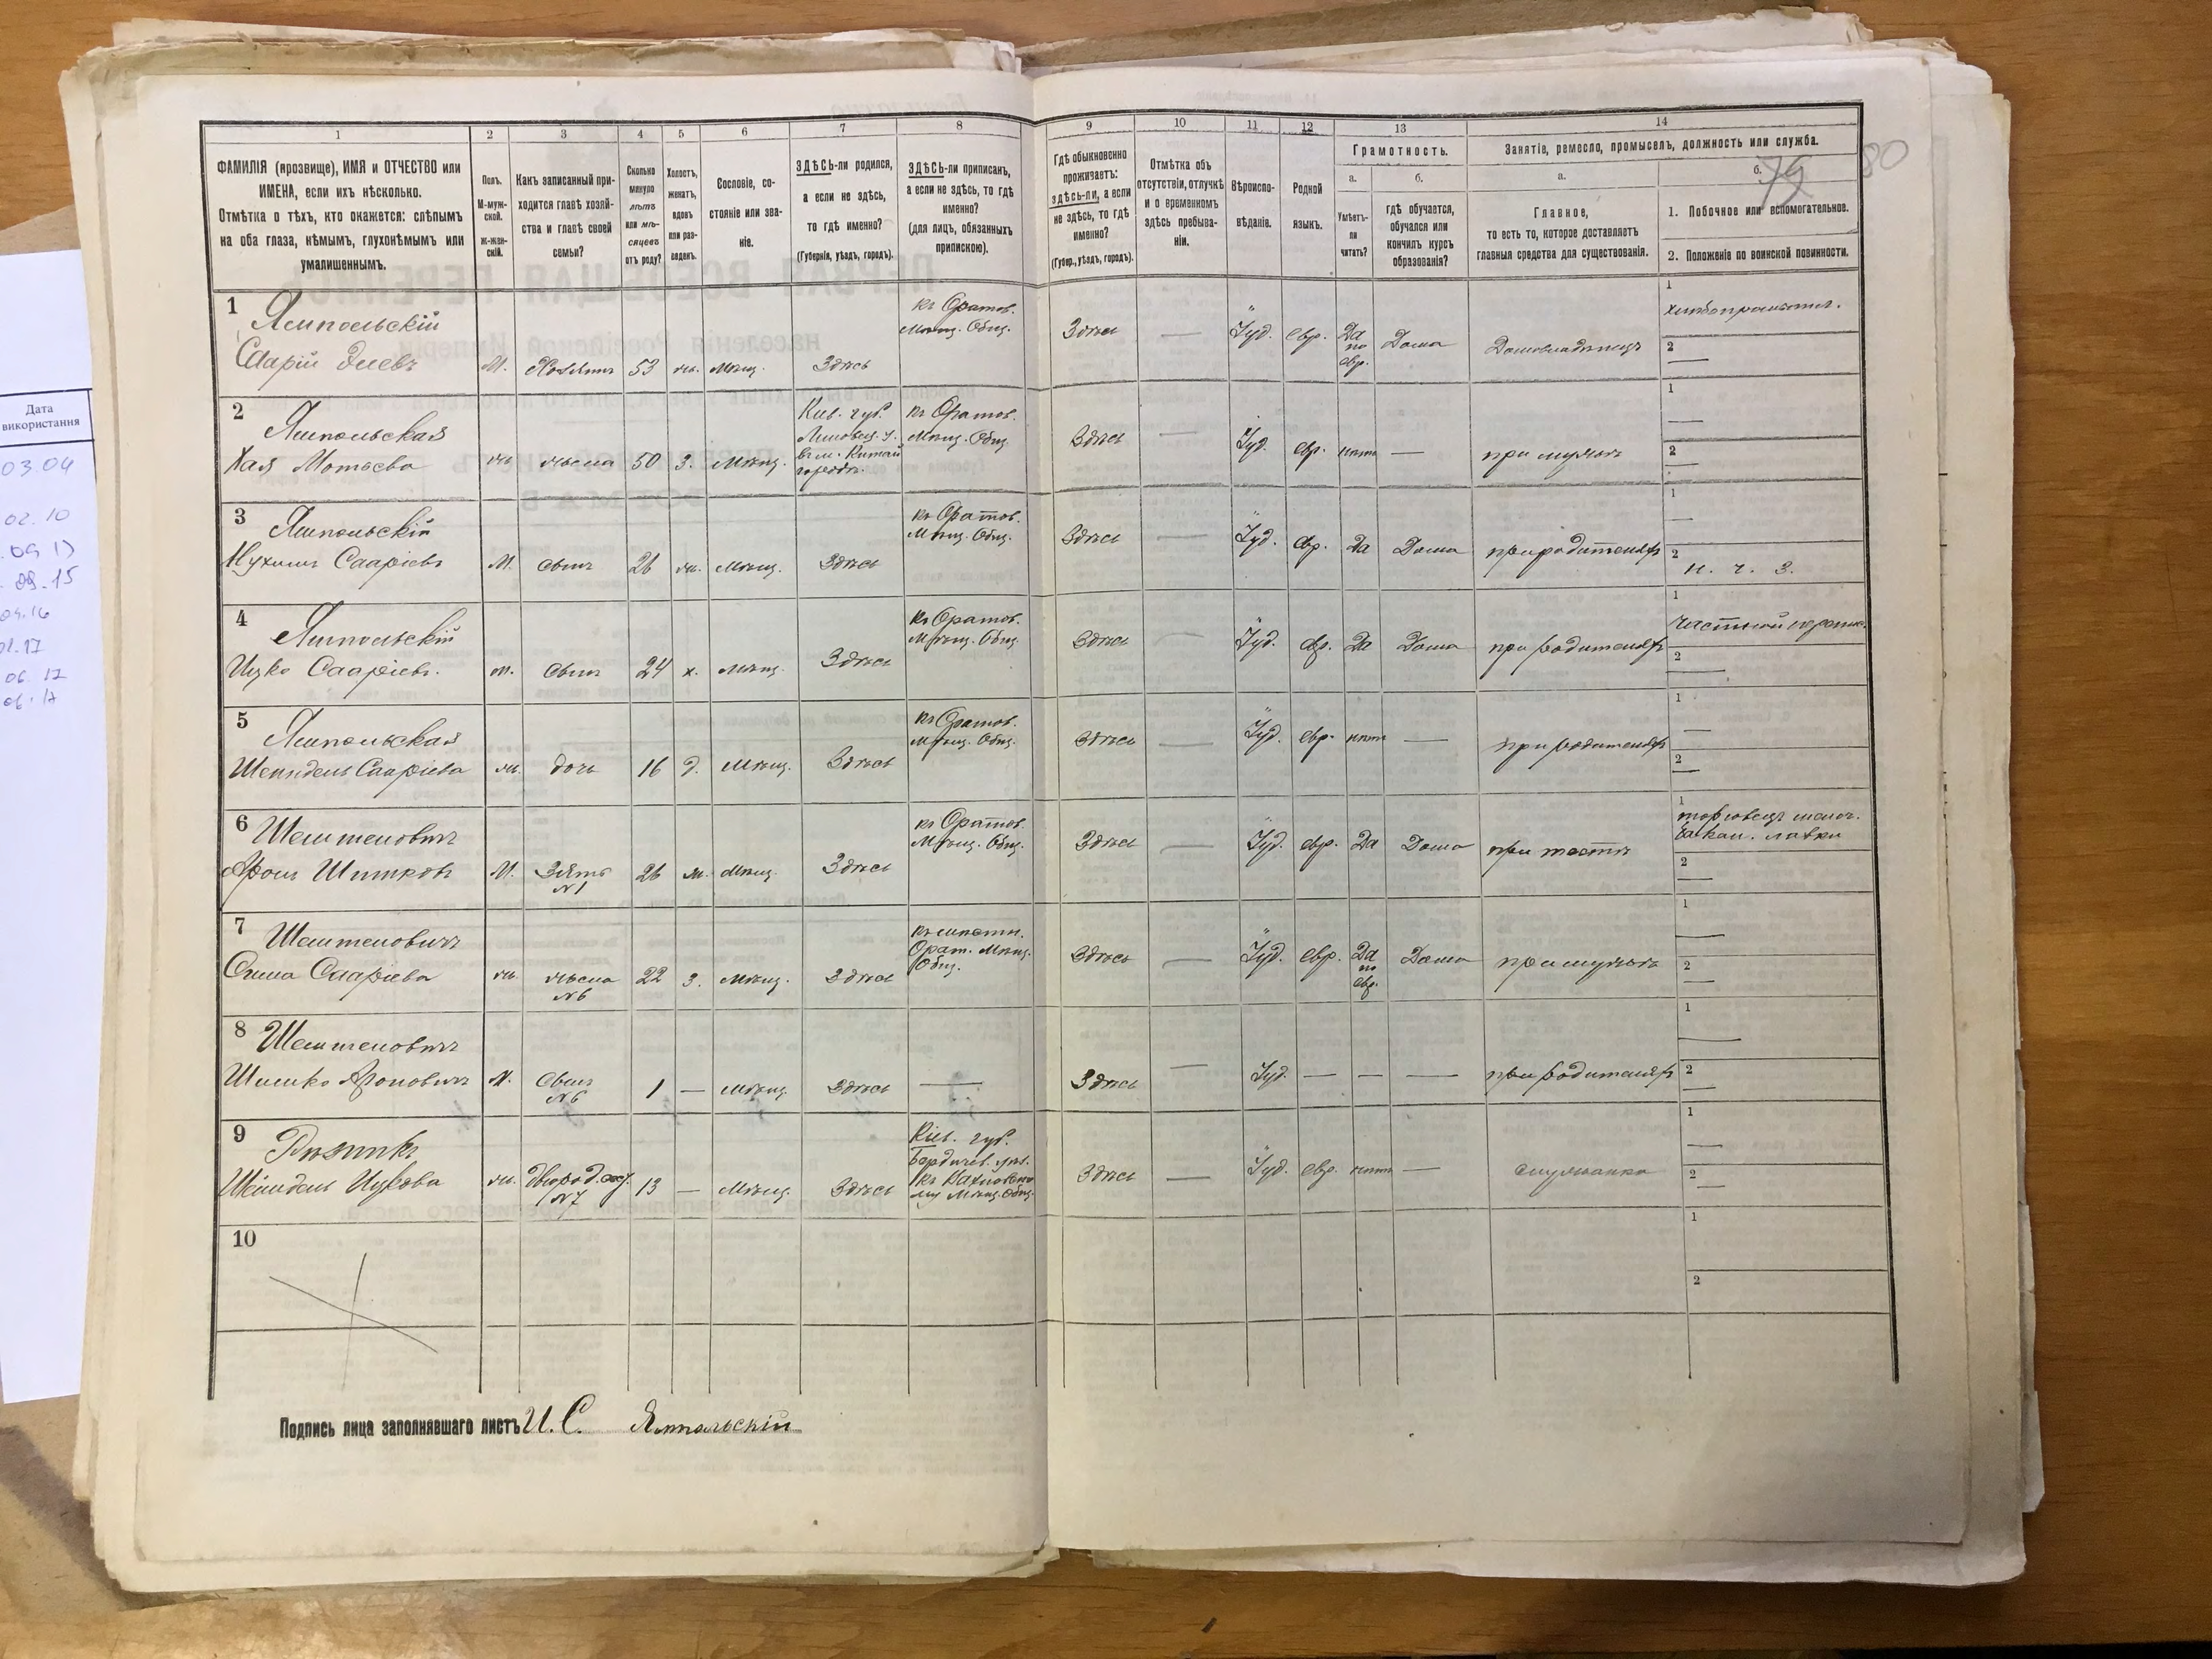 1 2 3 4 5 6 7 8 9 10 11 12 13 14
ФАМИЛІЯ (прозвище), ИМЯ и ОТЧЕСТВО или
ИМЕНА, если ихъ нѣсколько.
Отмѣтка о тѣхъ, кто окажется: слѣпымъ
на оба глаза, нѣмымъ, глухонѣмымъ или
умалишеннымъ.
Полъ.
М-муж-
ской.
Ж-жен-
скій.
Какъ записанный при-
ходится главѣ хозяй-
ства и главѣ своей
семьи?
Сколько
минуло
лѣтъ
или мѣ-
сяцевъ
отъ роду?
Холостъ,
женатъ,
вдовъ
или раз-
веденъ.
Сословіе, со-
стояніе или зва-
ніе.
ЗДѢСЬ-ли родился,
а если не здѣсь,
то гдѣ именно?
(Губернія, уѣздъ, городъ).
ЗДѢСЬ-ли приписанъ,
а если не здѣсь, то гдѣ
именно?
(для лицъ, обязанныхъ
припискою).
Гдѣ обыкновенно
проживаетъ:
здѣсь-ли, а если
не здѣсь, то гдѣ
именно?
(Губер., уѣздъ, городъ).
Отмѣтка объ
отсутствіи, отлучкѣ
и о временномъ
здѣсь пребыва-
ніи.
Вѣроиспо-
вѣданіе.
Родной
языкъ.
Грамотность.
а.
Умѣетъ-
ли
читать?
б.
гдѣ обучается,
обучался или
кончилъ курсъ
образованія?
Занятіе, ремесло, промыселъ, должность или служба.
а.
Главное,
то есть то, которое доставляетъ
главныя средства для существованія.
б.
1. Побочное или вспомогательное.
2. Положеніе по воинской повинности.
79 80
1
Ямпольскій
Саарій
М. Хозяинъ 53 жн. Мѣщ. Здѣсь
къ Оратов.
Мѣщ. Общ.
Здѣсь — Іуд. евр. Да
по
евр.
Дома Домовладѣлецъ
1
2 —
2
Ямпольская
Хая Мотьева
жн жена 50 з. Мѣщ.
Кіев. губ.
Липовец. у.
въ м. Китай
городѣ.
къ Оратов.
Мѣщ. Общ.
Здѣсь — Іуд. евр. нѣтъ — при мужѣ
1 —
2 —
3
Ямпольскій
Нухимъ Сааріевъ
М. сынъ 26 жн. Мѣщ. Здѣсь
къ Оратов.
Мѣщ. Общ.
Здѣсь — Іуд. евр. Да Дома при родителяхъ
1 —
2 н. ч. З.
4
Ямпольскій
Ицко Сааріевъ.
М. сынъ 24 х. Мѣщ. Здѣсь
къ Оратов.
Мѣщ. Общ.
Здѣсь — Іуд. евр. Да Дома при родителяхъ
1 частный
2 —
5
Ямпольская
Шейндель Сааріева
жн. дочь 16 д. Мѣщ. Здѣсь
къ Оратов.
Мѣщ. Общ.
Здѣсь — Іуд. евр. нѣтъ — при родителяхъ
1 —
2 —
6
Аронъ
М. Зять
№1
26 ж. Мѣщ. Здѣсь
къ Оратов.
Мѣщ. Общ.
Здѣсь — Іуд. евр. Да Дома при тестѣ
1 торговецъ мелоч.
бакал. лавки
2 —
7
Сааріева
жн. жена
№6
22 з. Мѣщ. Здѣсь
Орат. Мѣщ.
Общ.
Здѣсь — Іуд. евр. Да
по
евр.
Дома при мужѣ
1 —
2 —
8
Шимко Ароновичъ
М. сынъ
№6
1 — Мѣщ. Здѣсь —
Здѣсь — Іуд. — — — при родителяхъ
1 —
2 —
9
Рѣзникъ
Шейндель Ицкова
жн. двоюрод. сес.
№7
13 — Мѣщ. Здѣсь
Кіев. губ.
Бердичев. уѣз.
Здѣсь — Іуд. евр. нѣтъ — служанка
1 —
2 —
10
1
2
Подпись лица заполнявшаго листъ И. С. Ямпольскій
Дата
використання
03.04
02.10
08.15
04.16
01.17
06.17
06.17